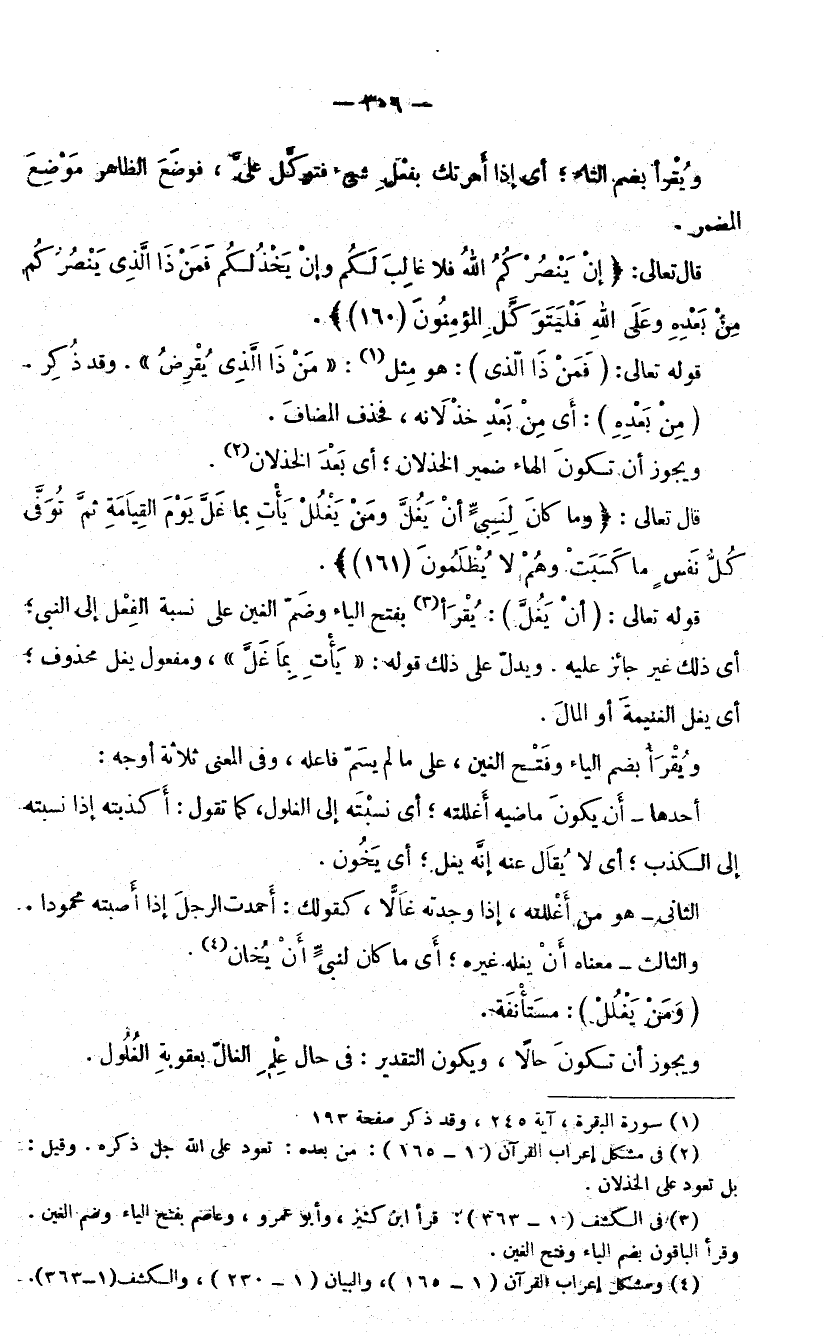 — ٣٠٦ —
ويُقْرأ بضم التاء ؛ أى إذا أمرتك بفعْلِ شىء فتوكَّل علىَّ ، فوضَعَ الظاهر مَوْضِعَ
المضمر .
قال تعالى: ﴿ إنْ يَنْصُرْكُمُ اللهُ فلا غالِبَ لَـكُم وإنْ يَخْذُلـكُم فَمَنْ ذَا الَّذِى يَنْصُرُكُم
مِنْ بَعْدِهِ وعَلَى اللهِ فَلْيَتَوَكَّلِ المؤمِنُونَ (١٦٠) ﴾ .
قوله تعالى: ( فَمَنْ ذَا الَّذى ) : هو مِثل(١) : « مَنْ ذَا الَّذِى يُقْرِضُ » . وقد ذُكِر .
( مِنْ بَعْدِهِ ) : أَى مِنْ بَعْدِ خذْلَانه ، فحذف المضافَ .
ويجوز أن تـكونَ الهاء ضمير الخذلان ؛ أى بَعْدَ الخذلان(٢) .
قال تعالى : ﴿ وما كانَ لِنَبِىٍّ أنْ يَغُلَّ ومَنْ يَغْلُلْ يَأْتِ بما غَلَّ يَوْمَ القِيَامَةِ ثمَّ تُوَفَّى
كُلُّ نَفْسٍ ما كَسَبَتْ وهُمْ لا يُظْلَمُونَ (١٦١) ﴾ .
قوله تعالى : ( أنْ يَغُلَّ ) : يُقْرَأ(٣) بفتح الياء وضَمّ الغين على نسبة الفِعْل إلى النبى ؛
أى ذلك غير جائز عليه . ويدلّ على ذلك قوله : « يَأْتِ بِمَا غَلَّ » ، ومفعول يغل محذوف ؛
أى يغل الغنيمةَ أو المالَ .
ويُقْرَأ بضم الياء وفَتْح الغين ، على ما لم يسَمّ فاعله ، وفى المعنى ثلاثة أوجه :
أحدها ـ أن يكونَ ماضيه أغللته ؛ أى نسبْتَه إلى الغلول، كما تقول : أكذبته إذا نسبته
إلى الـكذب ؛ أى لا يُقَال عنه إنَّه يغل ؛ أى يَخُون .
الثانى ـ هو من أَغْللته ، إذا وجدته غَالًّا ، كقولك : أحمدت الرجلَ إذا أصبته محمودا .
والثالث ـ معناه أنْ يغله غيره ؛ أى ما كان لنبىٍّ أنْ يُخان(٤) .
( وَمَنْ يَغْلُلْ ) : مستَأْنَفَة .
ويجوز أن تـكونَ حالًا ، ويكون التقدير : فى حال عِلْمِ الغالّ بعقوبةِ الغُلُول .
(١) سورة البقرة ، آية ٢٤٥ ، وقد ذكر صفحة ١٩٣
(٢) فى مشكل إعراب القرآن ( ١ ـ ١٦٥ ) : من بعده : تعود على الله جل ذكره . وقيل :
بل تعود على الخذلان .
(٣) فى الـكشف ( ١ ـ ٣٦٣ ) : قرأ ابن كثير ، وأبو عمرو ، وعاصم بفتح الياء وضم الغين .
وقرأ الباقون بضم الياء وفتح الغين .
(٤) ومشكل إعراب القرآن ( ١ ـ ١٦٥ )، والبيان ( ١ ـ ٢٣٠ ) ، والكشف (١ـ٣٦٣).